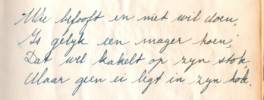 Wie belooft en niet wil doen,
Is gelyk een mager hoen;
Dat wel kakelt op zyn stok,
Maar geen ei legt in zyn hok.